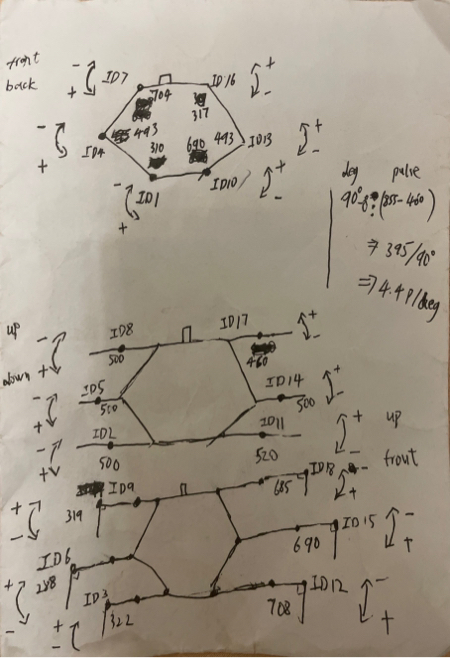 front
back
- + ID7 704 ID16 + -
317
- + ID4 493 493 ID13 + -
310 690
- + ID1 ID10 + -
deg pulse
90° (855-460)
⇒ 395/90°
⇒ 4.4P/deg
up
down
- + ID8 500 ID17 460 + -
- + ID5 500 ID14 500 + -
- + ID2 500 ID11 520 + - up
front
+ - ID9 319 685 ID18 - +
ID6 288 690 ID15 - +
+ - ID3 322 708 ID12 - +
+ -